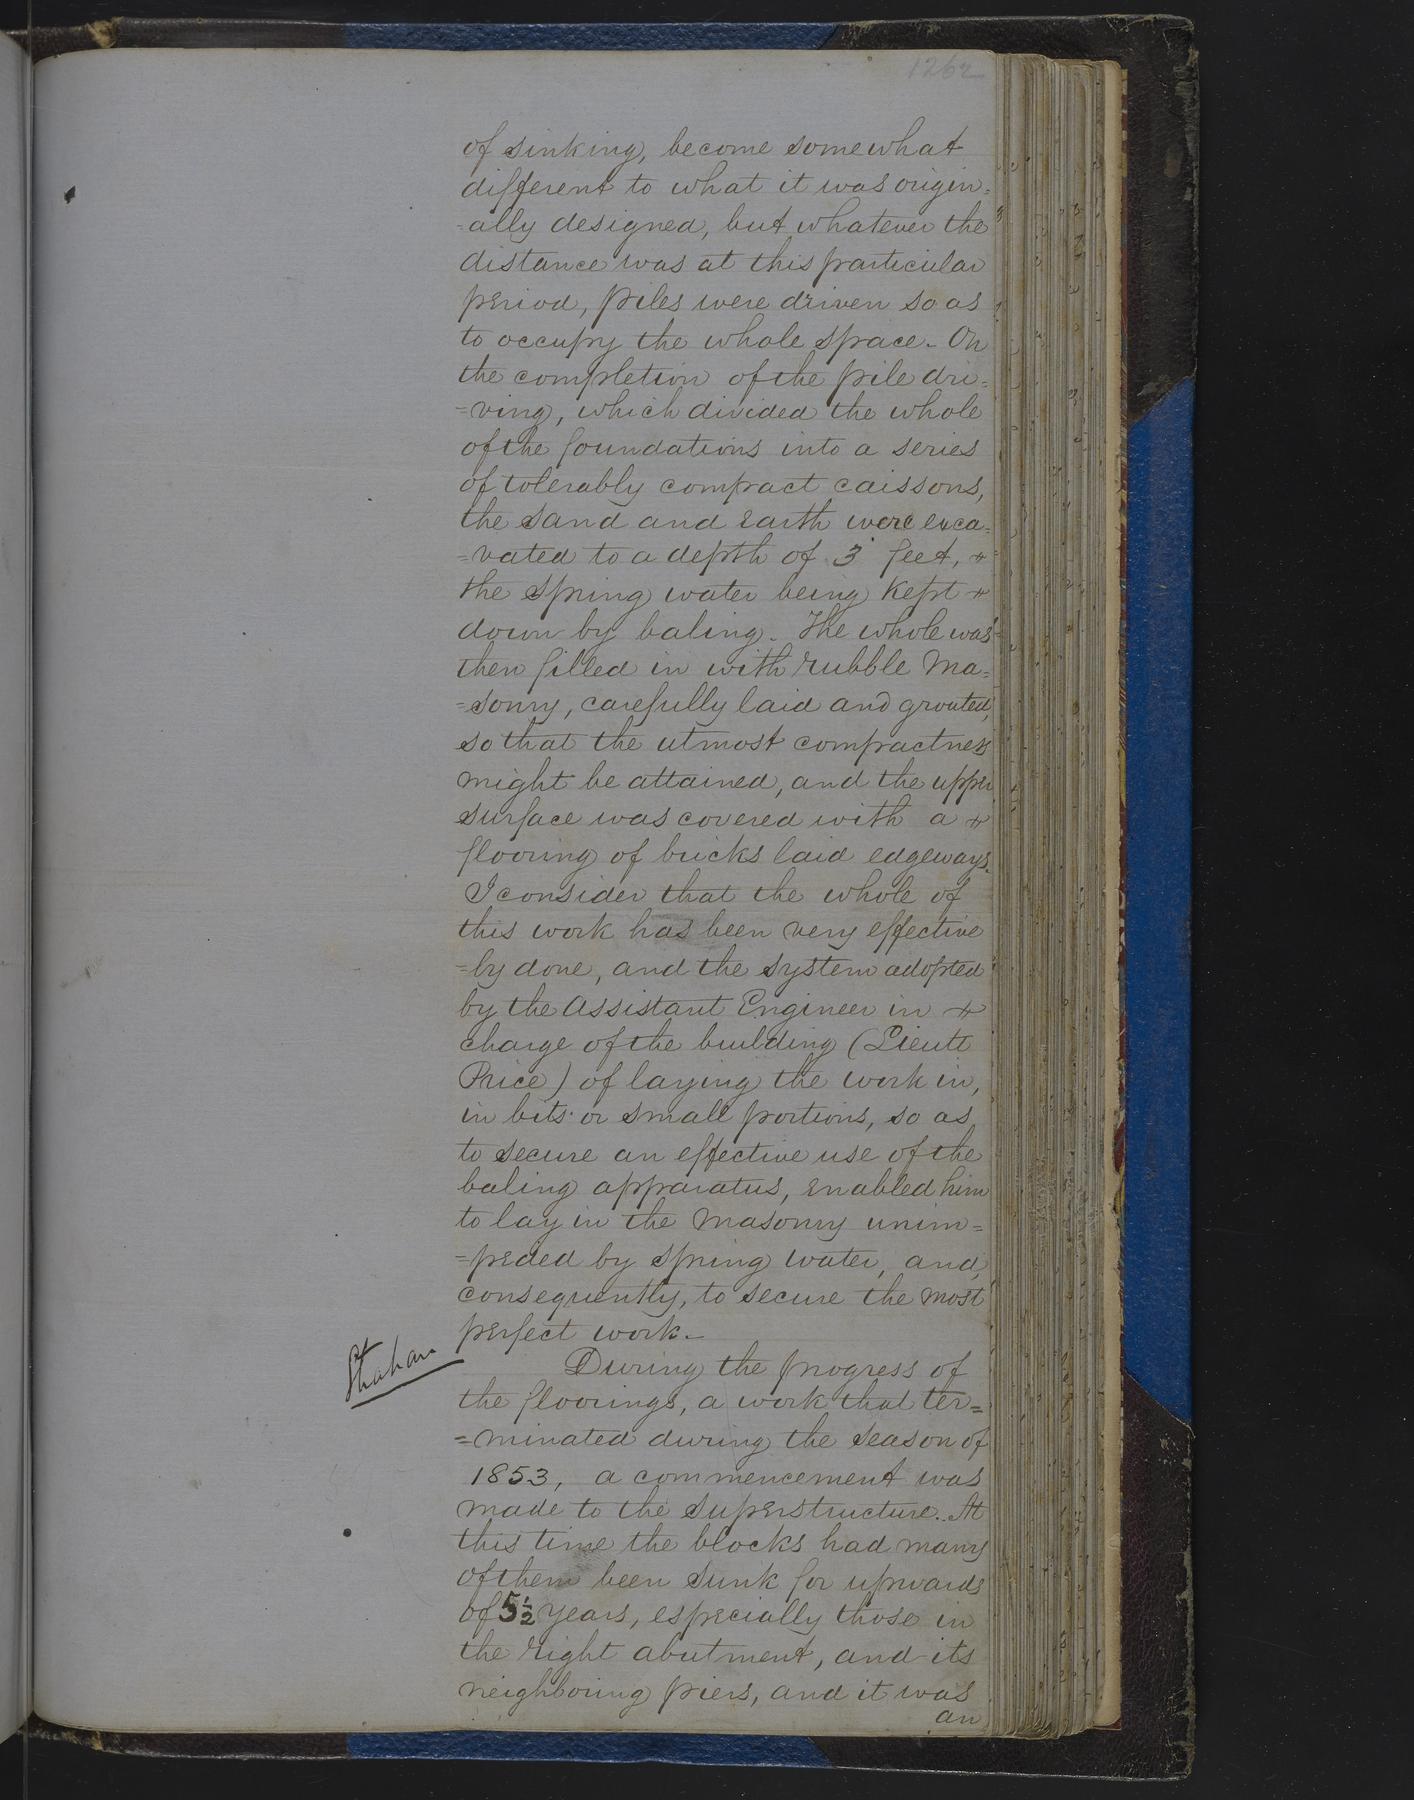 1262
of sinking, become somewhat
different to what it was origin=
=ally designed, but whatever the
distance was at this particular
period, piles were driven so as
to occupy the whole space. On
the completion of the pile dri=
=ving, which divided the whole
of the foundations into a series
of tolerably compact caissons,
the sand and earth were exca=
=vated to a depth of 3 feet,
the spring water being kept
down by baling. The whole was
then filled in with rubble ma=
=sonry, carefully laid and grouted,
so that the utmost compactness
might be attained, and the upper
surface was covered with a
flooring of bricks laid edgeways.
I consider that the whole of
this work has been very effective
=ly done, and the system adopted
by the Assistant Engineer in
charge of the building (Lieutt
Price) of laying the work in,
in bits or small portions, so as
to secure an effective use of the
baling apparatus, enabled him
to lay in the masonry unim=
=peded by spring water, and,
consequently, to secure the most
perfect work.
During the progress of
the floorings, a work that ter=
=minated during the season of
1853, a commencement was
made to the superstructure. At
this time the blocks had many
of them been sunk for upwards
of 5½ years, especially those in
the right abutment, and its
neighboring piers, and it was
an